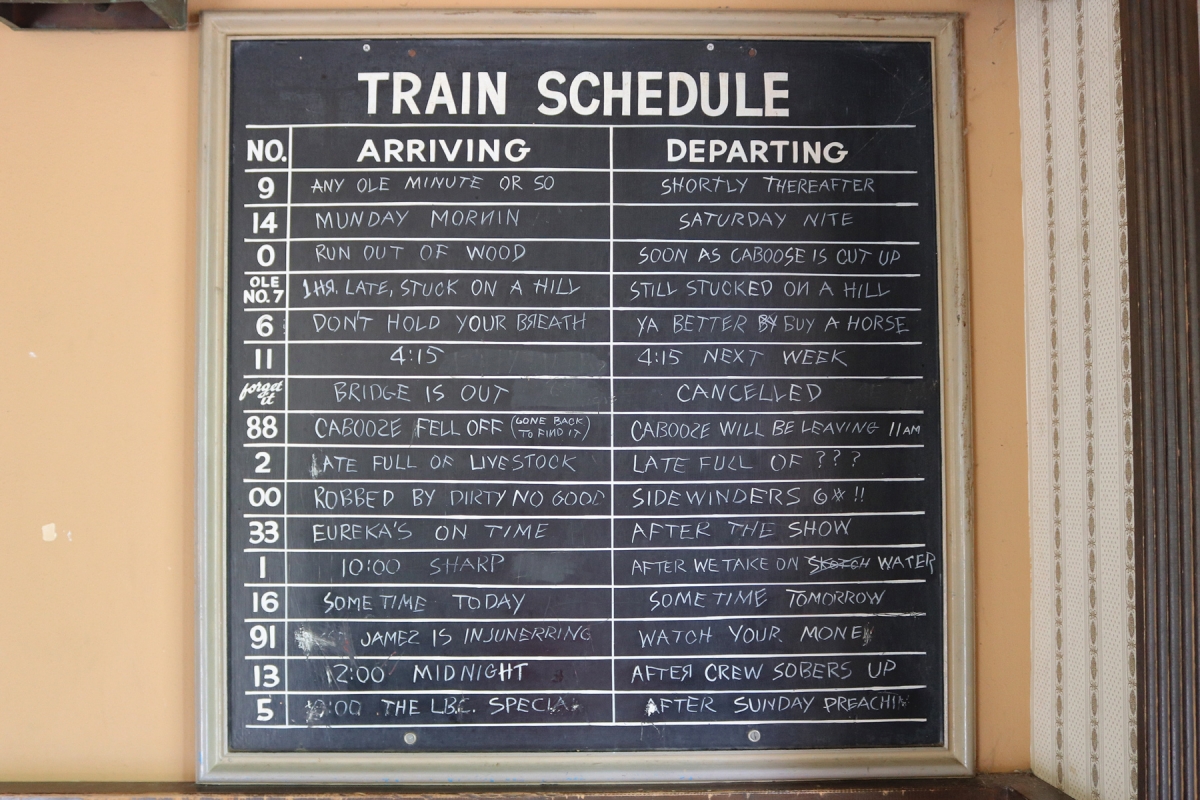 TRAIN SCHEDULE
NO. ARRIVING DEPARTING
9 ANY OLE MINUTE OR SO SHORTLY THEREAFTER
14 MUNDAY MORNIN SATURDAY NITE
0 RUN OUT OF WOOD SOON AS CABOOSE IS CUT UP
OLE NO. 7 1 HR. LATE, STUCK ON A HILL STILL STUCKED ON A HILL
6 DON'T HOLD YOUR BREATH YA BETTER BY BUY A HORSE
11 4:15 4:15 NEXT WEEK
forget it BRIDGE IS OUT CANCELLED
88 CABOOZE FELL OFF (GONE BACK TO FIND IT) CABOOZE WILL BE LEAVING 11AM
2 LATE FULL OF LIVESTOCK LATE FULL OF ???
00 ROBBED BY DIRTY NO GOOD SIDEWINDERS @* !!
33 EUREKA'S ON TIME AFTER THE SHOW
1 10:00 SHARP AFTER WE TAKE ON SKOTCH WATER
16 SOMETIME TODAY SOMETIME TOMORROW
91 JAMEZ IS INJUNERRING WATCH YOUR MONEY
13 12:00 MIDNIGHT AFTER CREW SOBERS UP
5 10:00 THE L.B.C. SPECIAL AFTER SUNDAY PREACHIN